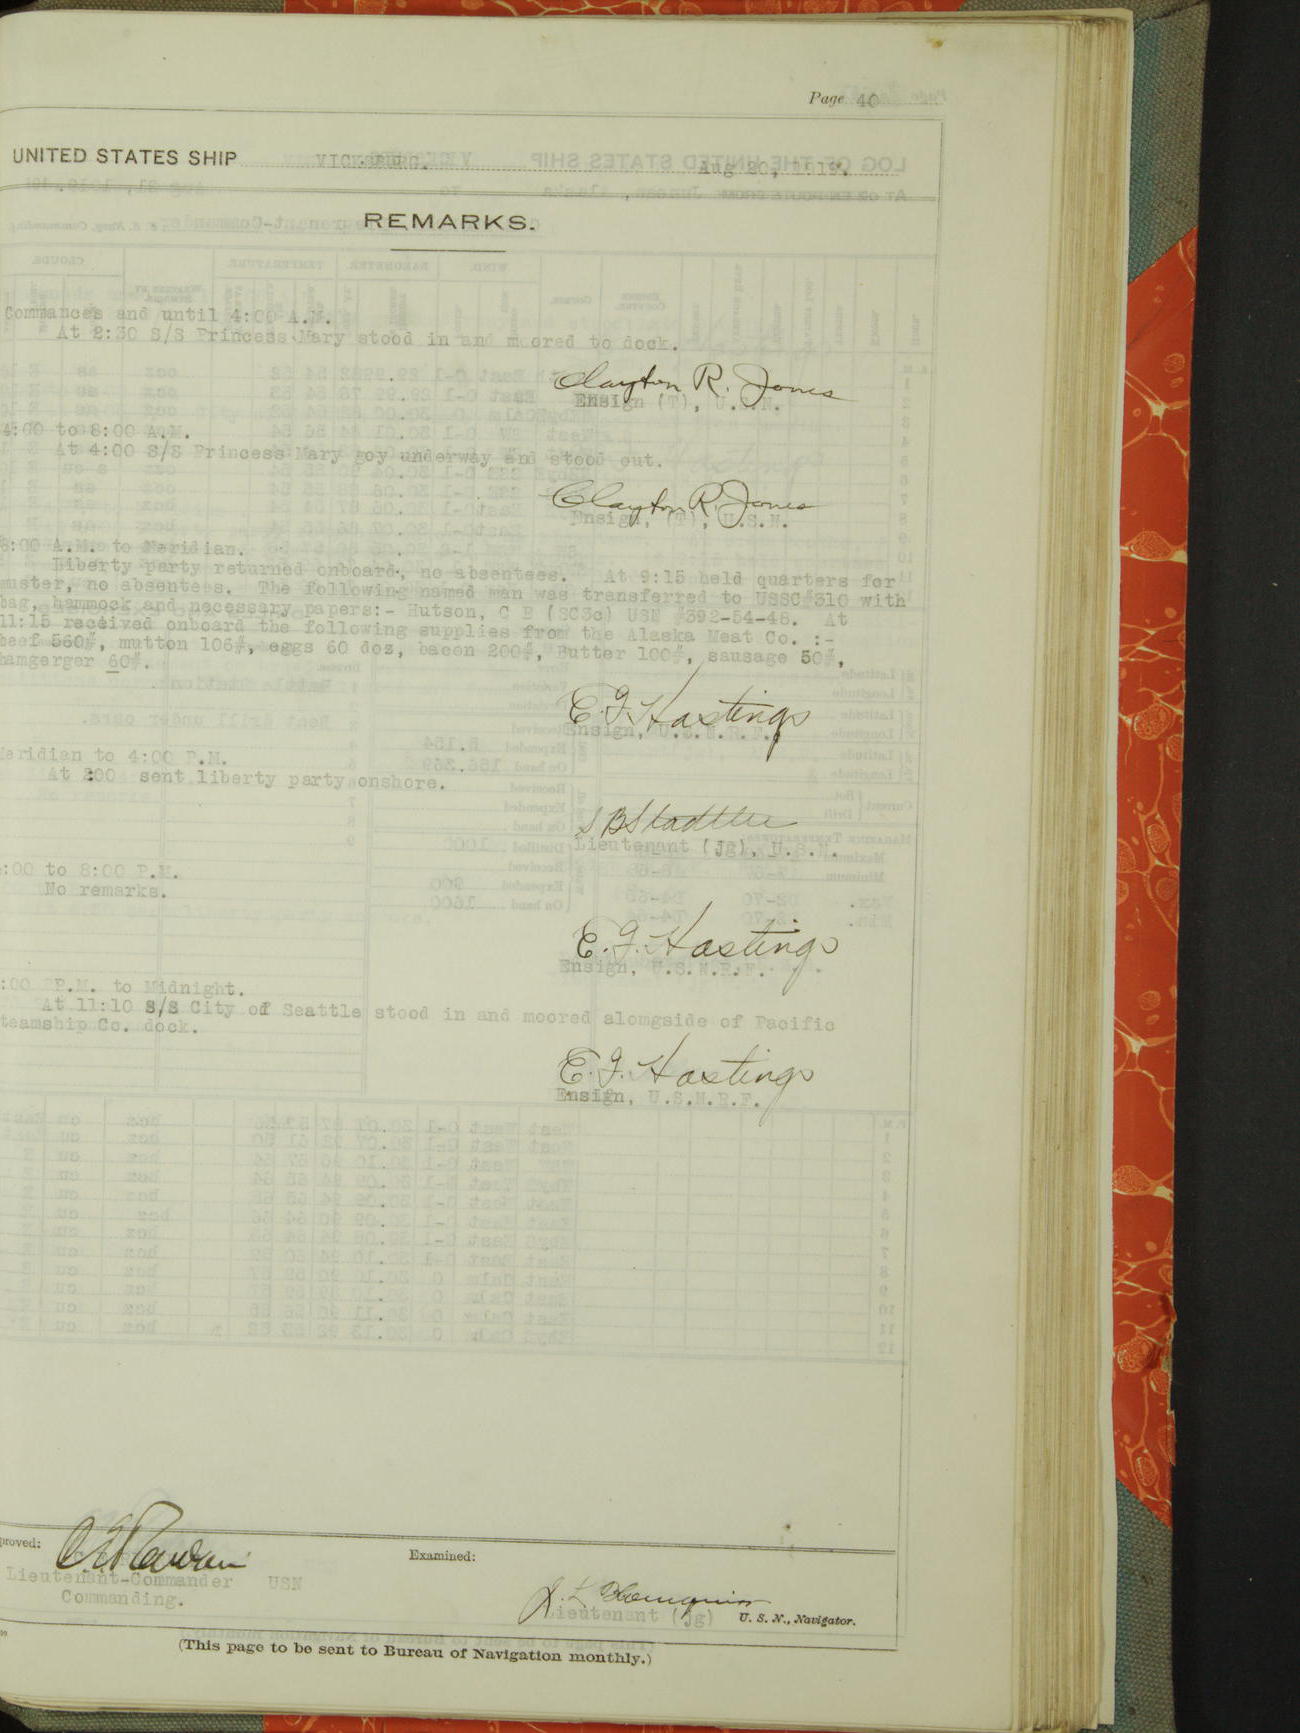 Page 40
UNITED STATES SHIP VICKSBURG. Aug 20, 1919.
REMARKS.
Commances and until 4:00 A.M.
At 2:30 S/S Princess Mary stood in and moored to dock.
Clayton R. Jones
Ensign (T), U.S.N.
4:00 to 8:00 A.M.
At 4:00 S/S Princess Mary goy underway and stood out.
Clayton R. Jones
Ensign, (T), U.S.N.
8:00 A.M. to Meridian.
Liberty party returned onboard, no absentees. At 9:15 held quarters for
muster, no absentees. The following named man was transferred to USSC#310 with
bag, hammock and necessary papers:- Hutson, C B (SC3c) USN #392-54-45. At
11:15 received onboard the following supplies from the Alaska Meat Co. :-
beef 560#, mutton 106#, eggs 60 doz, bacon 200#, Butter 100#, sausage 50#,
hamgerger 60#.
E. G. Hastings
Ensign, U.S.N.R.F.
Meridian to 4:00 P.M.
At 200 sent liberty party onshore.
Lieutenant (jg), U.S.N.
:00 to 8:00 P.M.
No remarks.
E. G. Hastings
Ensign, U.S.N.R.F.
:00 PP.M. to Midnight.
At 11:10 S/S City of Seattle stood in and moored alomgside of Pacific
teamship Co. dock.
E. G. Hastings
Ensign, U.S.N.R.F.
proved:
Examined:
Lieutenant-Commander USN
Commanding.
Lieutenant (jg) U. S. N., Navigator.
(This page to be sent to Bureau of Navigation monthly.)